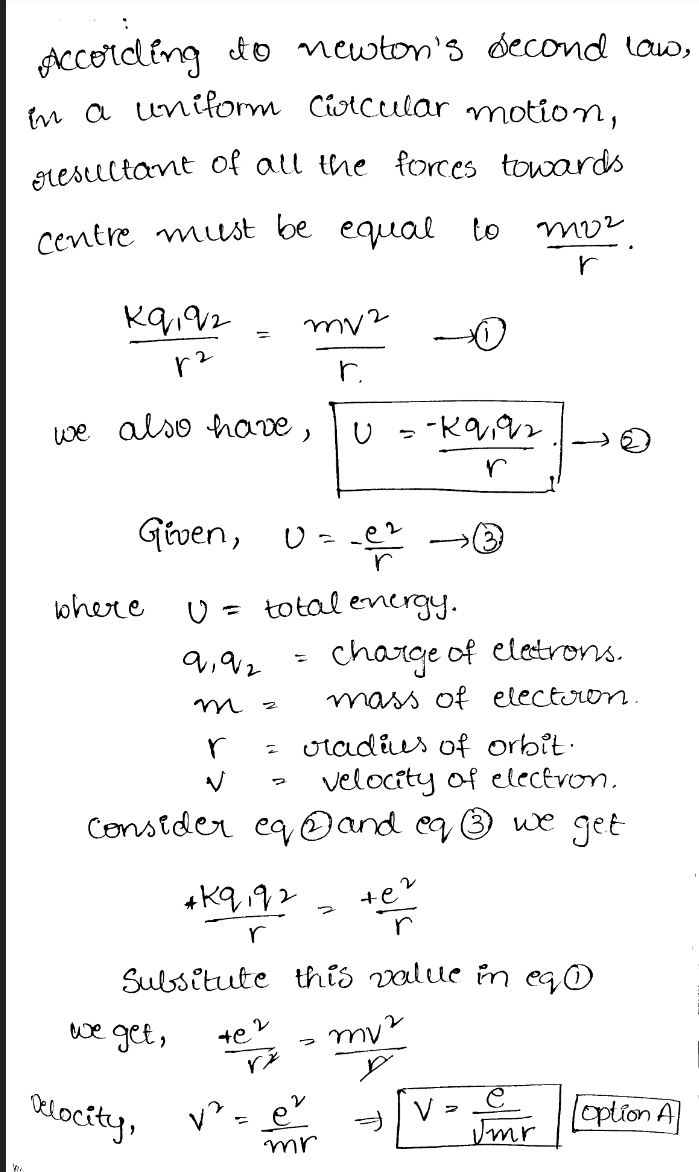 According to newton's second law,
in a uniform circular motion,
resultant of all the forces towards
centre must be equal to mv²/r.
kq₁q₂/r² = mv²/r. → ①
we also have, U = -kq₁q₂/r. → ②
Given, U = -e²/r → ③
where U = total energy.
q₁q₂ = charge of eletrons.
m = mass of electron.
r = radius of orbit.
v = velocity of electron.
consider eq ② and eq ③ we get
+kq₁q₂/r = +e²/r
Subsitute this value in eq ①
we get, +e²/r² = mv²/r
velocity, v² = e²/mr ⇒ v = e/√mr option A